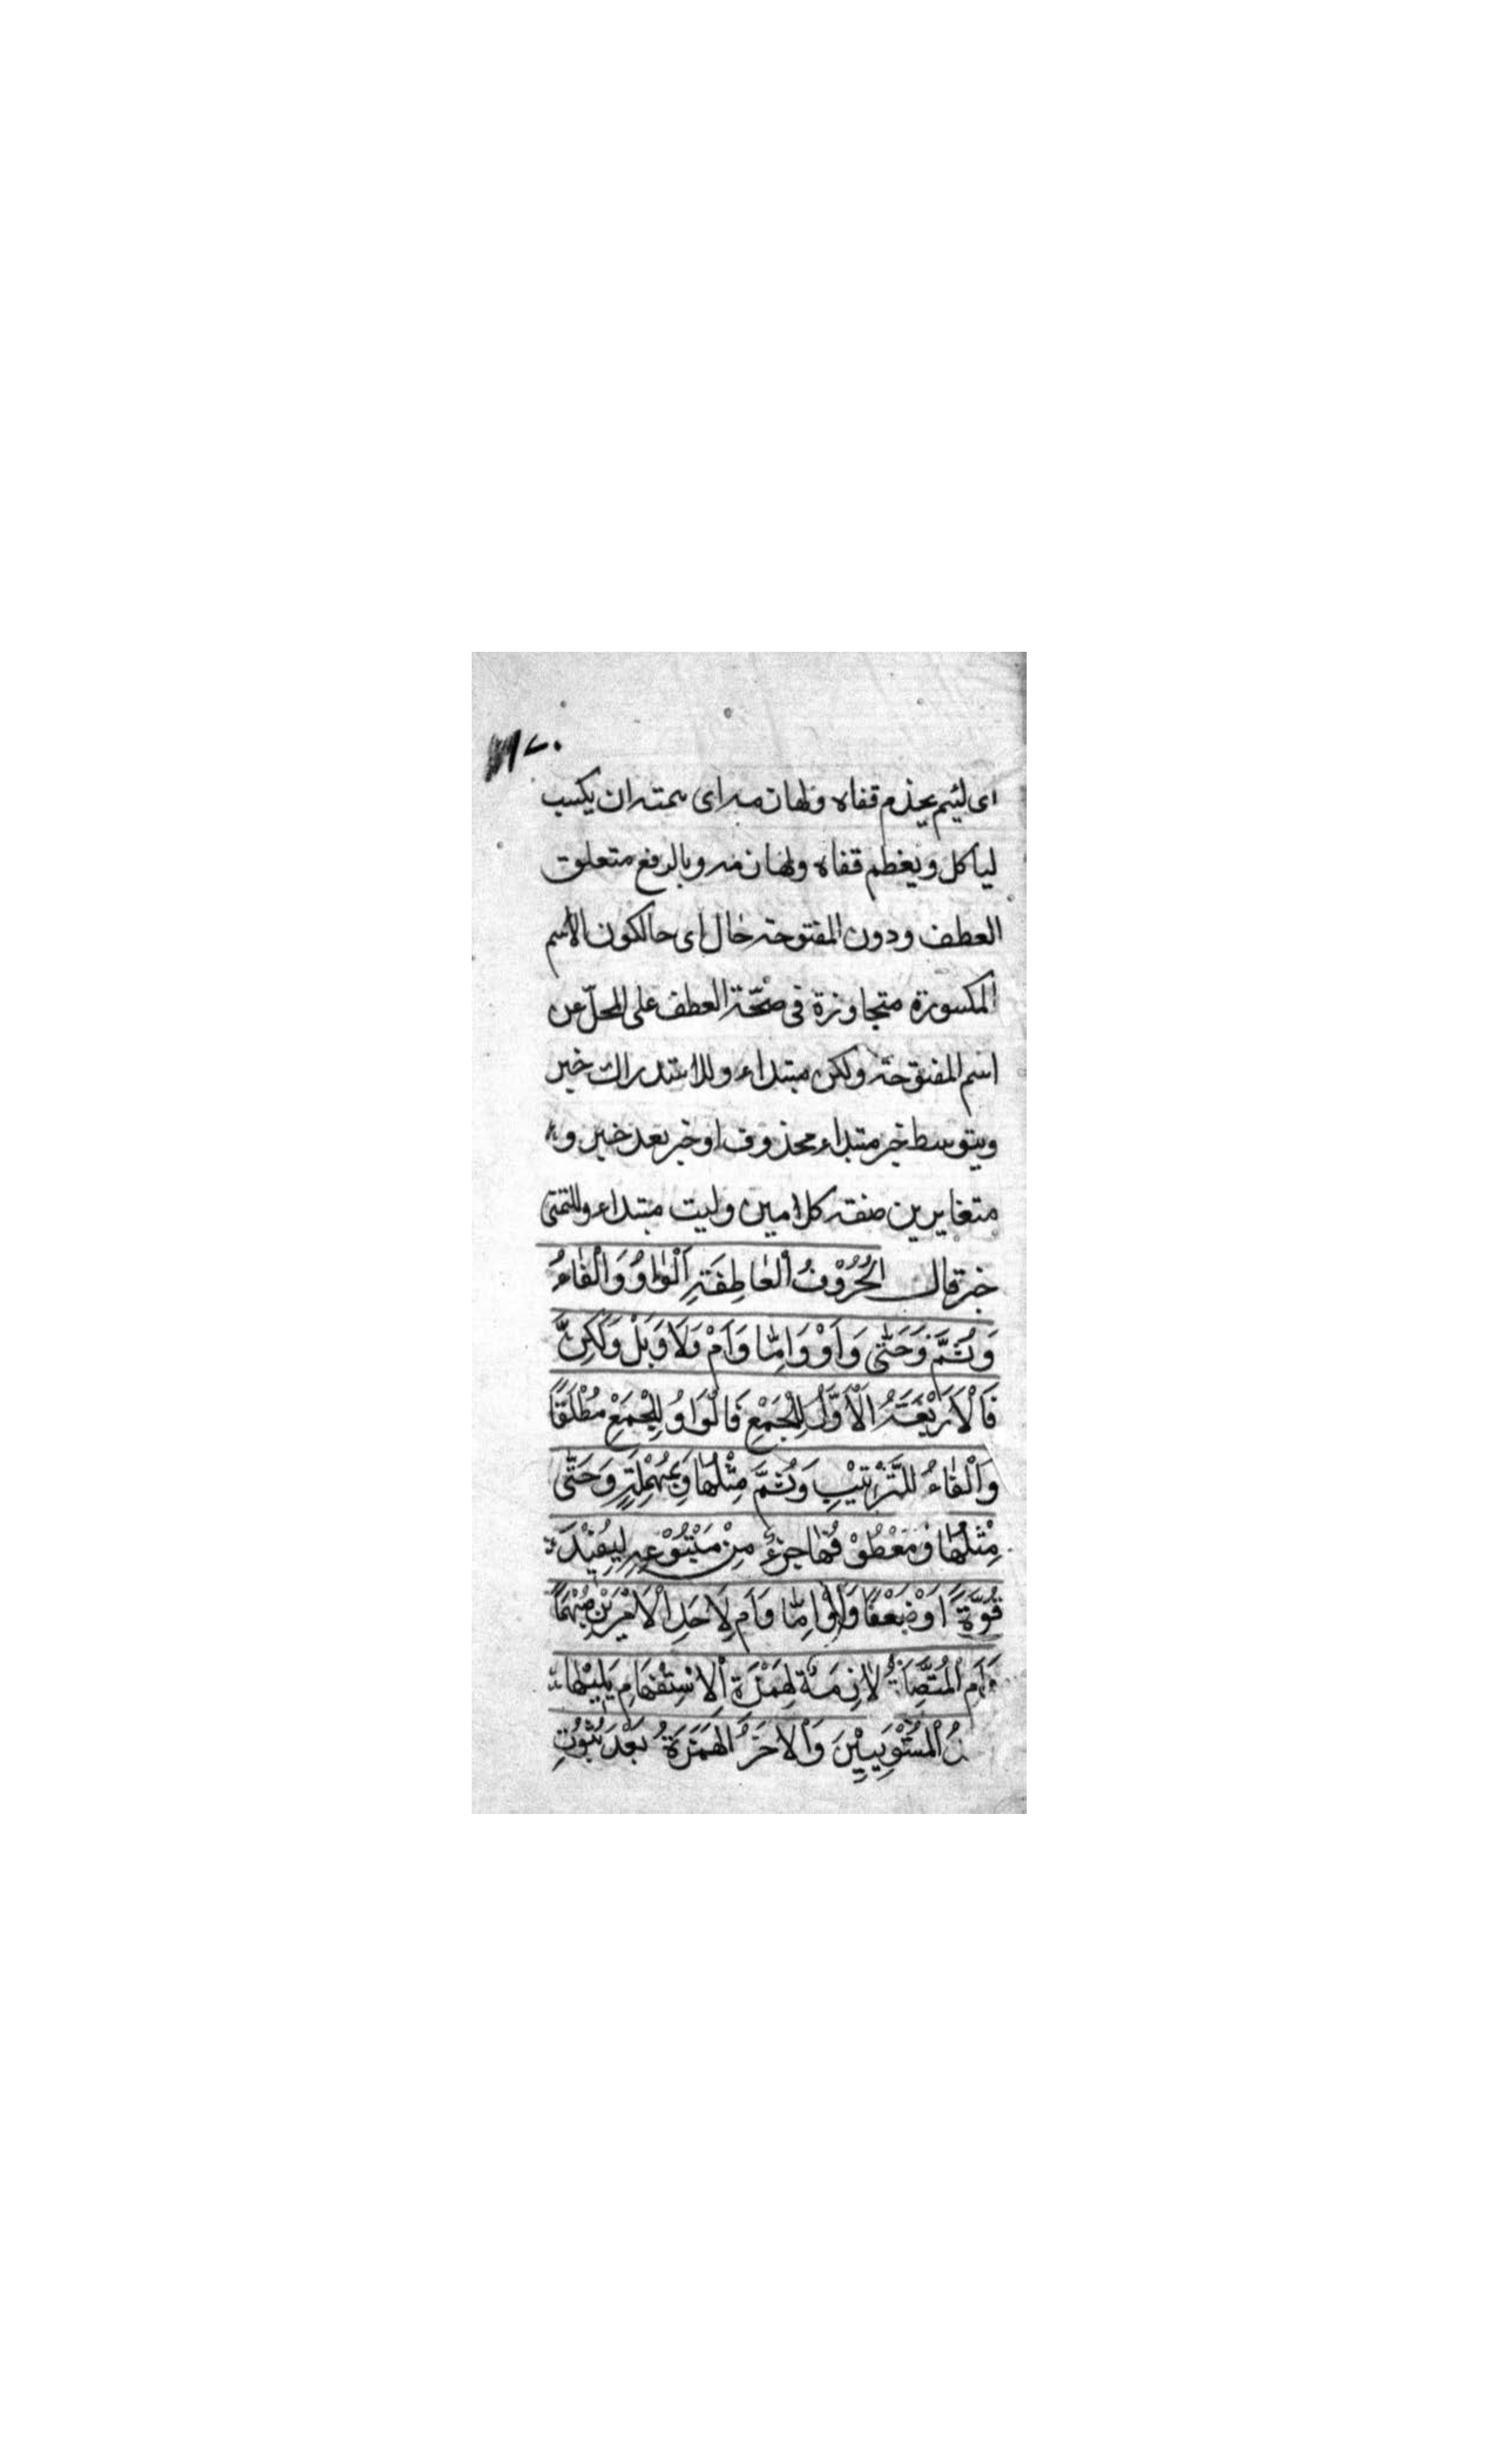 ١٢٠
اى لئيم يخذم قفاه ولهازمه اى همته ان يكسب
لياكل ويغظم قفاه ولهازمه وبالرفع متعلق
العطف ودون المفتوحة حال اى حالكون الاسم
المكسورة متجاوزة فى صحّة العطف على المحلّ عن
اسم المفتوحة ولكن مبتداء وللاستدراك خبر
ويتوسط خبر مبتداء محذوف او خبر بعد خبر و
متغايرين صفة كلامين وليت مبتداء وللتمنى
خبر قال الْحُرُوْفُ الْعَاطِفَةِ اَلْوَاوُ وَالْفَاءُ
وَثُمَّ وَحَتّٰى وَاَوْ وَاِمَّا وَاَمْ وَلَا وَبَلْ وَلٰكِنَّ
فَالْاَرْبَعَةُ الْاَوَّلُ لِلْجَمْعِ فَالْوَاوُ لِلْجَمْعِ مُطْلَقًا
وَالْفَاءُ للتَّرْتِيْبِ وَثُمَّ مِثْلُهَا وَبِمُهْلَةٍ وَحَتّٰى
مِثْلُهَا وَمَعْطُوْفُهَا جزءٌ مِنْ مَتْبُوْعِهِ لِيُفِيْدَ
قُوَّةً اَوْ ضَعْفًا وَاَوْ اِمَّا وَاَم لِاَحَدِ الْاَمْرَيْنِ مُبْهَمًا
وَاَمِ الْمُتَّصِلَةُ لَازِمَةٌ لِهَمْزَةِ الْاِسْتِفْهَامِ يَلِيْهَا
الْمُسْتَوِيَيْنِ وَالْاٰخَرُ الْهَمْزَةُ بَعْدَ ثُبُوْتِ